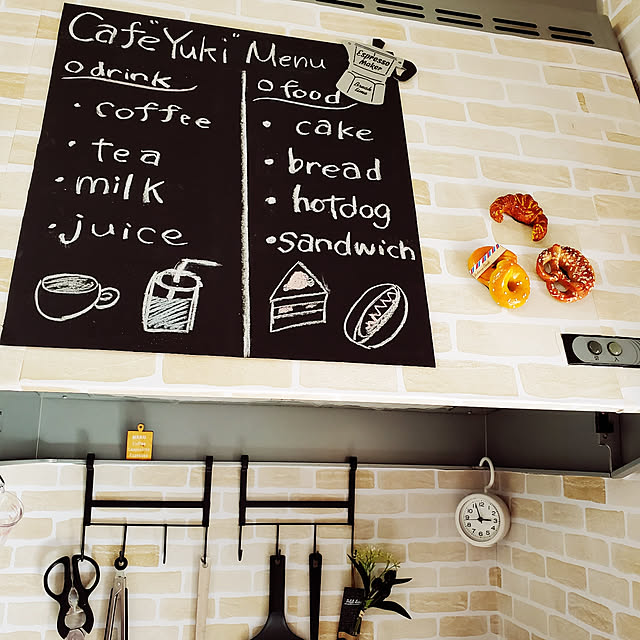 Cafe "Yuki" Menu
o drink
• coffee
• tea
• milk
• juice
o food
• cake
• bread
• hotdog
• sandwich
Espresso
Maker